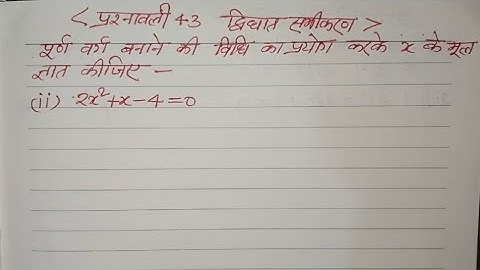 < प्रश्नावली 4.3 द्विघात समीकरण >
पूर्ण वर्ग बनाने की विधि का प्रयोग करके 'x' के मूल
ज्ञात कीजिए -
(ii) 2x²+x-4=0